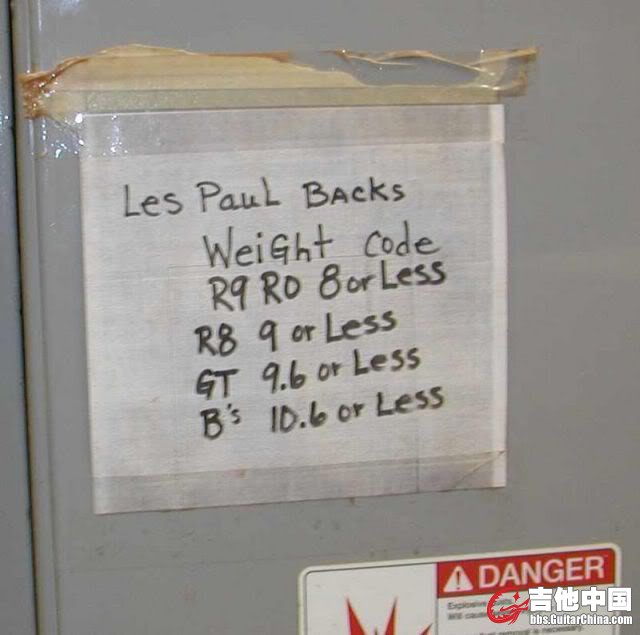 Les Paul Backs
Weight Code
R9 R0 8 or Less
R8 9 or Less
GT 9.6 or Less
B's 10.6 or Less
DANGER
吉他中国
bbs.GuitarChina.com